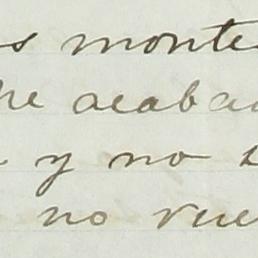 s monte
he acaba
y no
no vue